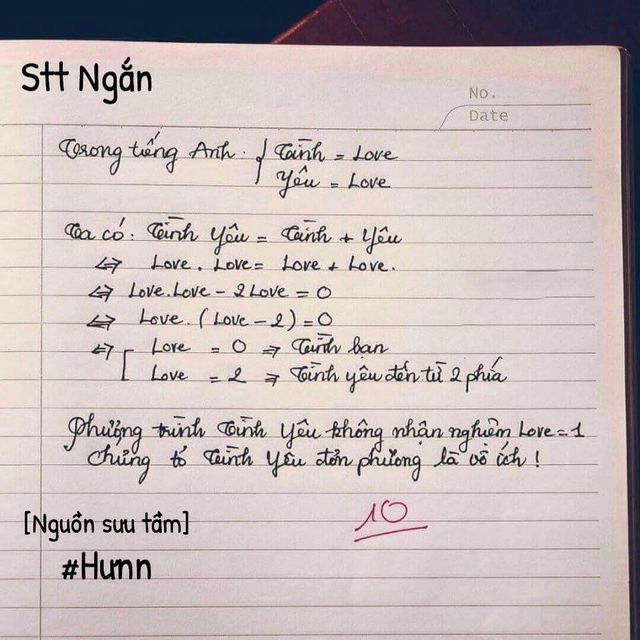 Stt Ngắn
No.
Date
Trong tiếng Anh: { Tình = Love
Yêu = Love
Ta có: Tình Yêu = Tình + Yêu
⇔ Love . Love = Love + Love.
⇔ Love.Love - 2Love = 0
⇔ Love . (Love - 2) = 0
⇔ [ Love = 0 ⇒ Tình bạn
Love = 2 ⇒ Tình yêu đến từ 2 phía
Phương trình Tình Yêu không nhận nghiệm Love = 1
chứng tỏ Tình Yêu đơn phương là vô ích !
10
[Nguồn sưu tầm]
#Hưnn